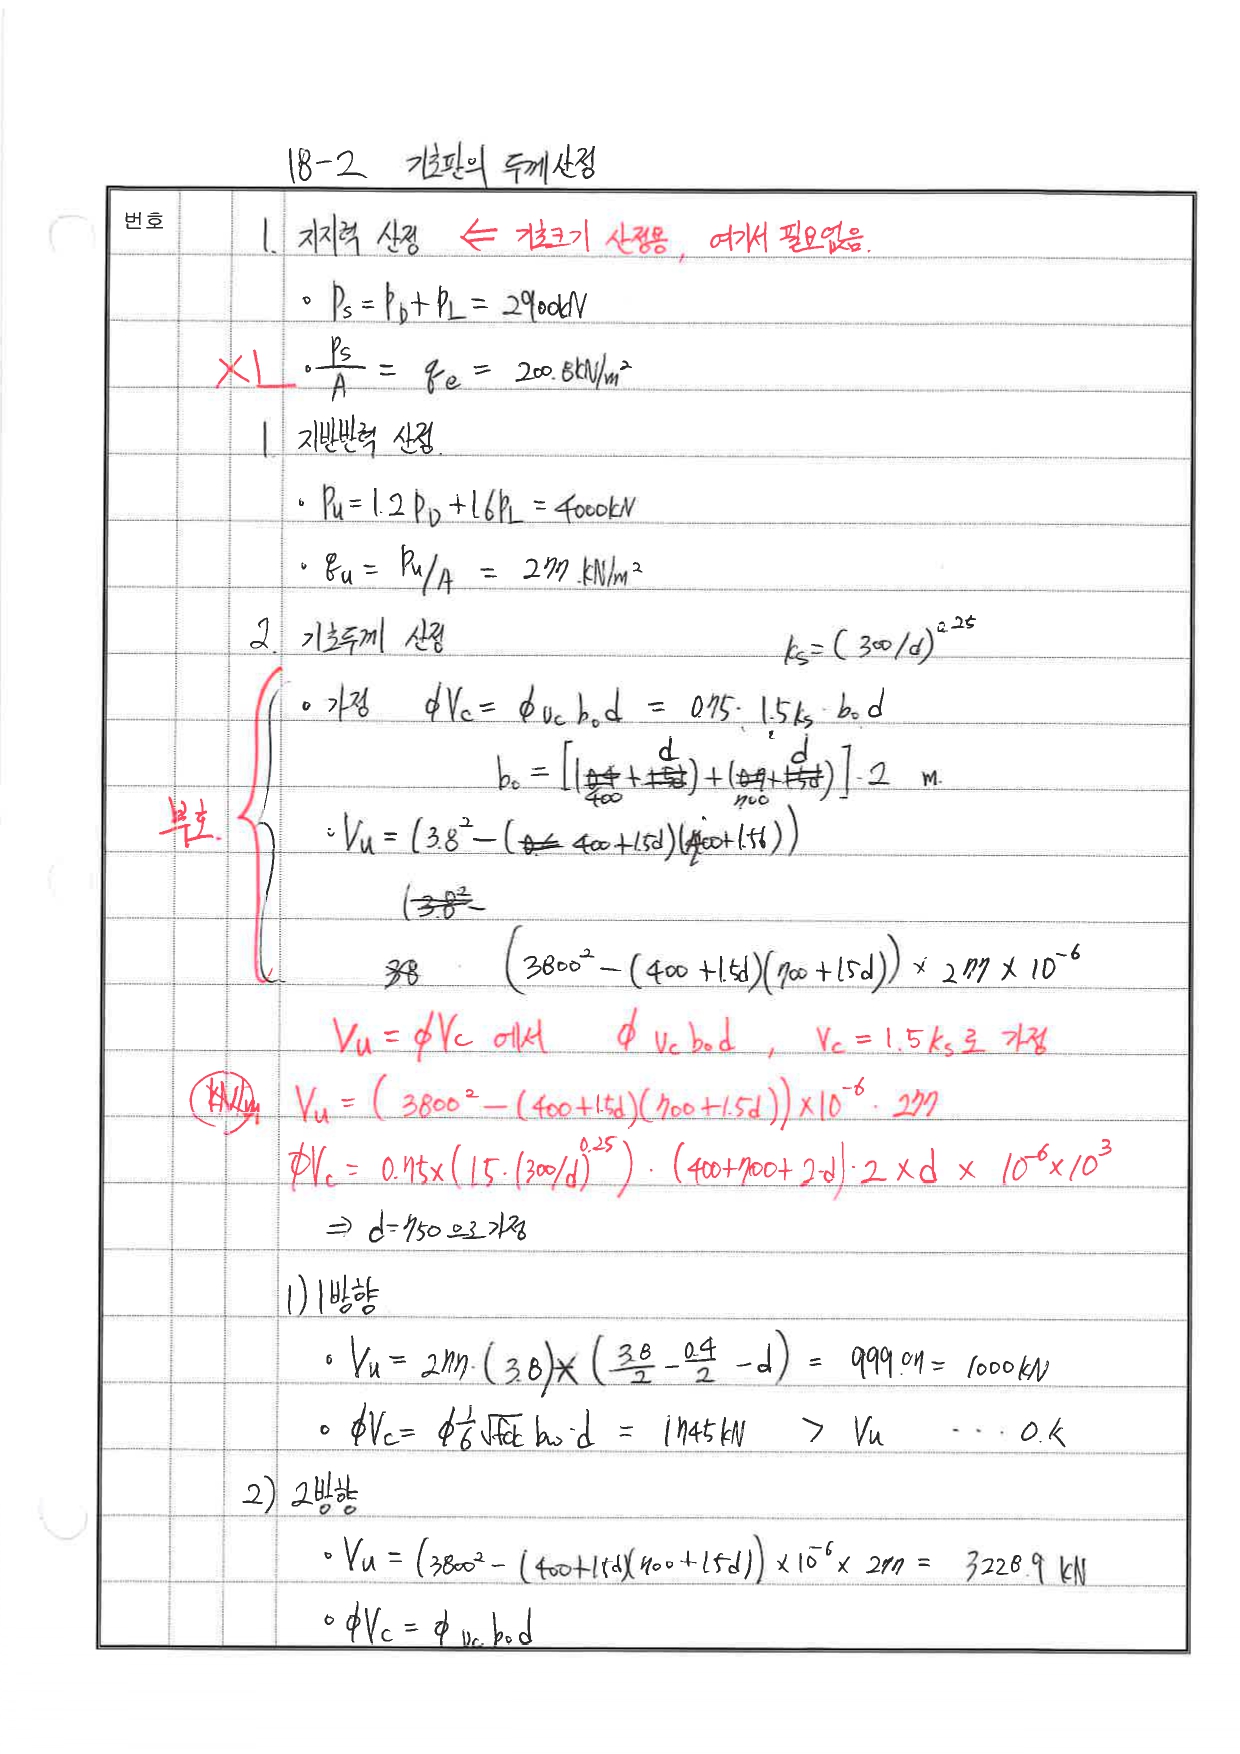 18-2 기초판의 두께산정
번호
1. 지지력 산정 ⇐ 기초크기 산정용, 여기서 필요없음.
∘ Ps = PD + PL = 2900kN
× ∘ Ps/A = qe = 200.8kN/m²
1 지반반력 산정.
∘ Pu = 1.2PD + 1.6PL = 4000kN
∘ qu = Pu/A = 277.kN/m²
2. 기초두께 산정 ks = (300/d)^0.25
∘ 가정 φVc = φ vc b₀ d = 0.75· 1.5ks· b₀ d
b₀ = [(400 + d) + (700 + d)]·2 m.
부호.
∘ Vu = (3.8² - ( 400+1.5d)(400+1.5d))
(3.8² -
38 (3800² - (400 + 1.5d)(700 + 1.5d)) × 277 × 10⁻⁶
Vu = φVc 에서 φ vc b₀ d , vc = 1.5ks로 가정
kN/m Vu = (3800² - (400+1.5d)(700+1.5d)) ×10⁻⁶ · 277
φVc = 0.75×(1.5·(300/d)^0.25) · (400+700+2·d)·2 × d × 10⁻⁶×10³
⇒ d=750으로가정
1) 1방향
∘ Vu = 277·(3.8)×(3.8/2 - 0.4/2 - d) = 999.07 = 1000kN
∘ φVc = φ 1/6 √fck bw·d = 1745kN > Vu ···· O.K
2) 2방향
∘ Vu = (3800² - (400+1.5d)(700+1.5d)) ×10⁻⁶ × 277 = 3228.9 kN
∘ φVc = φ vc b₀ d